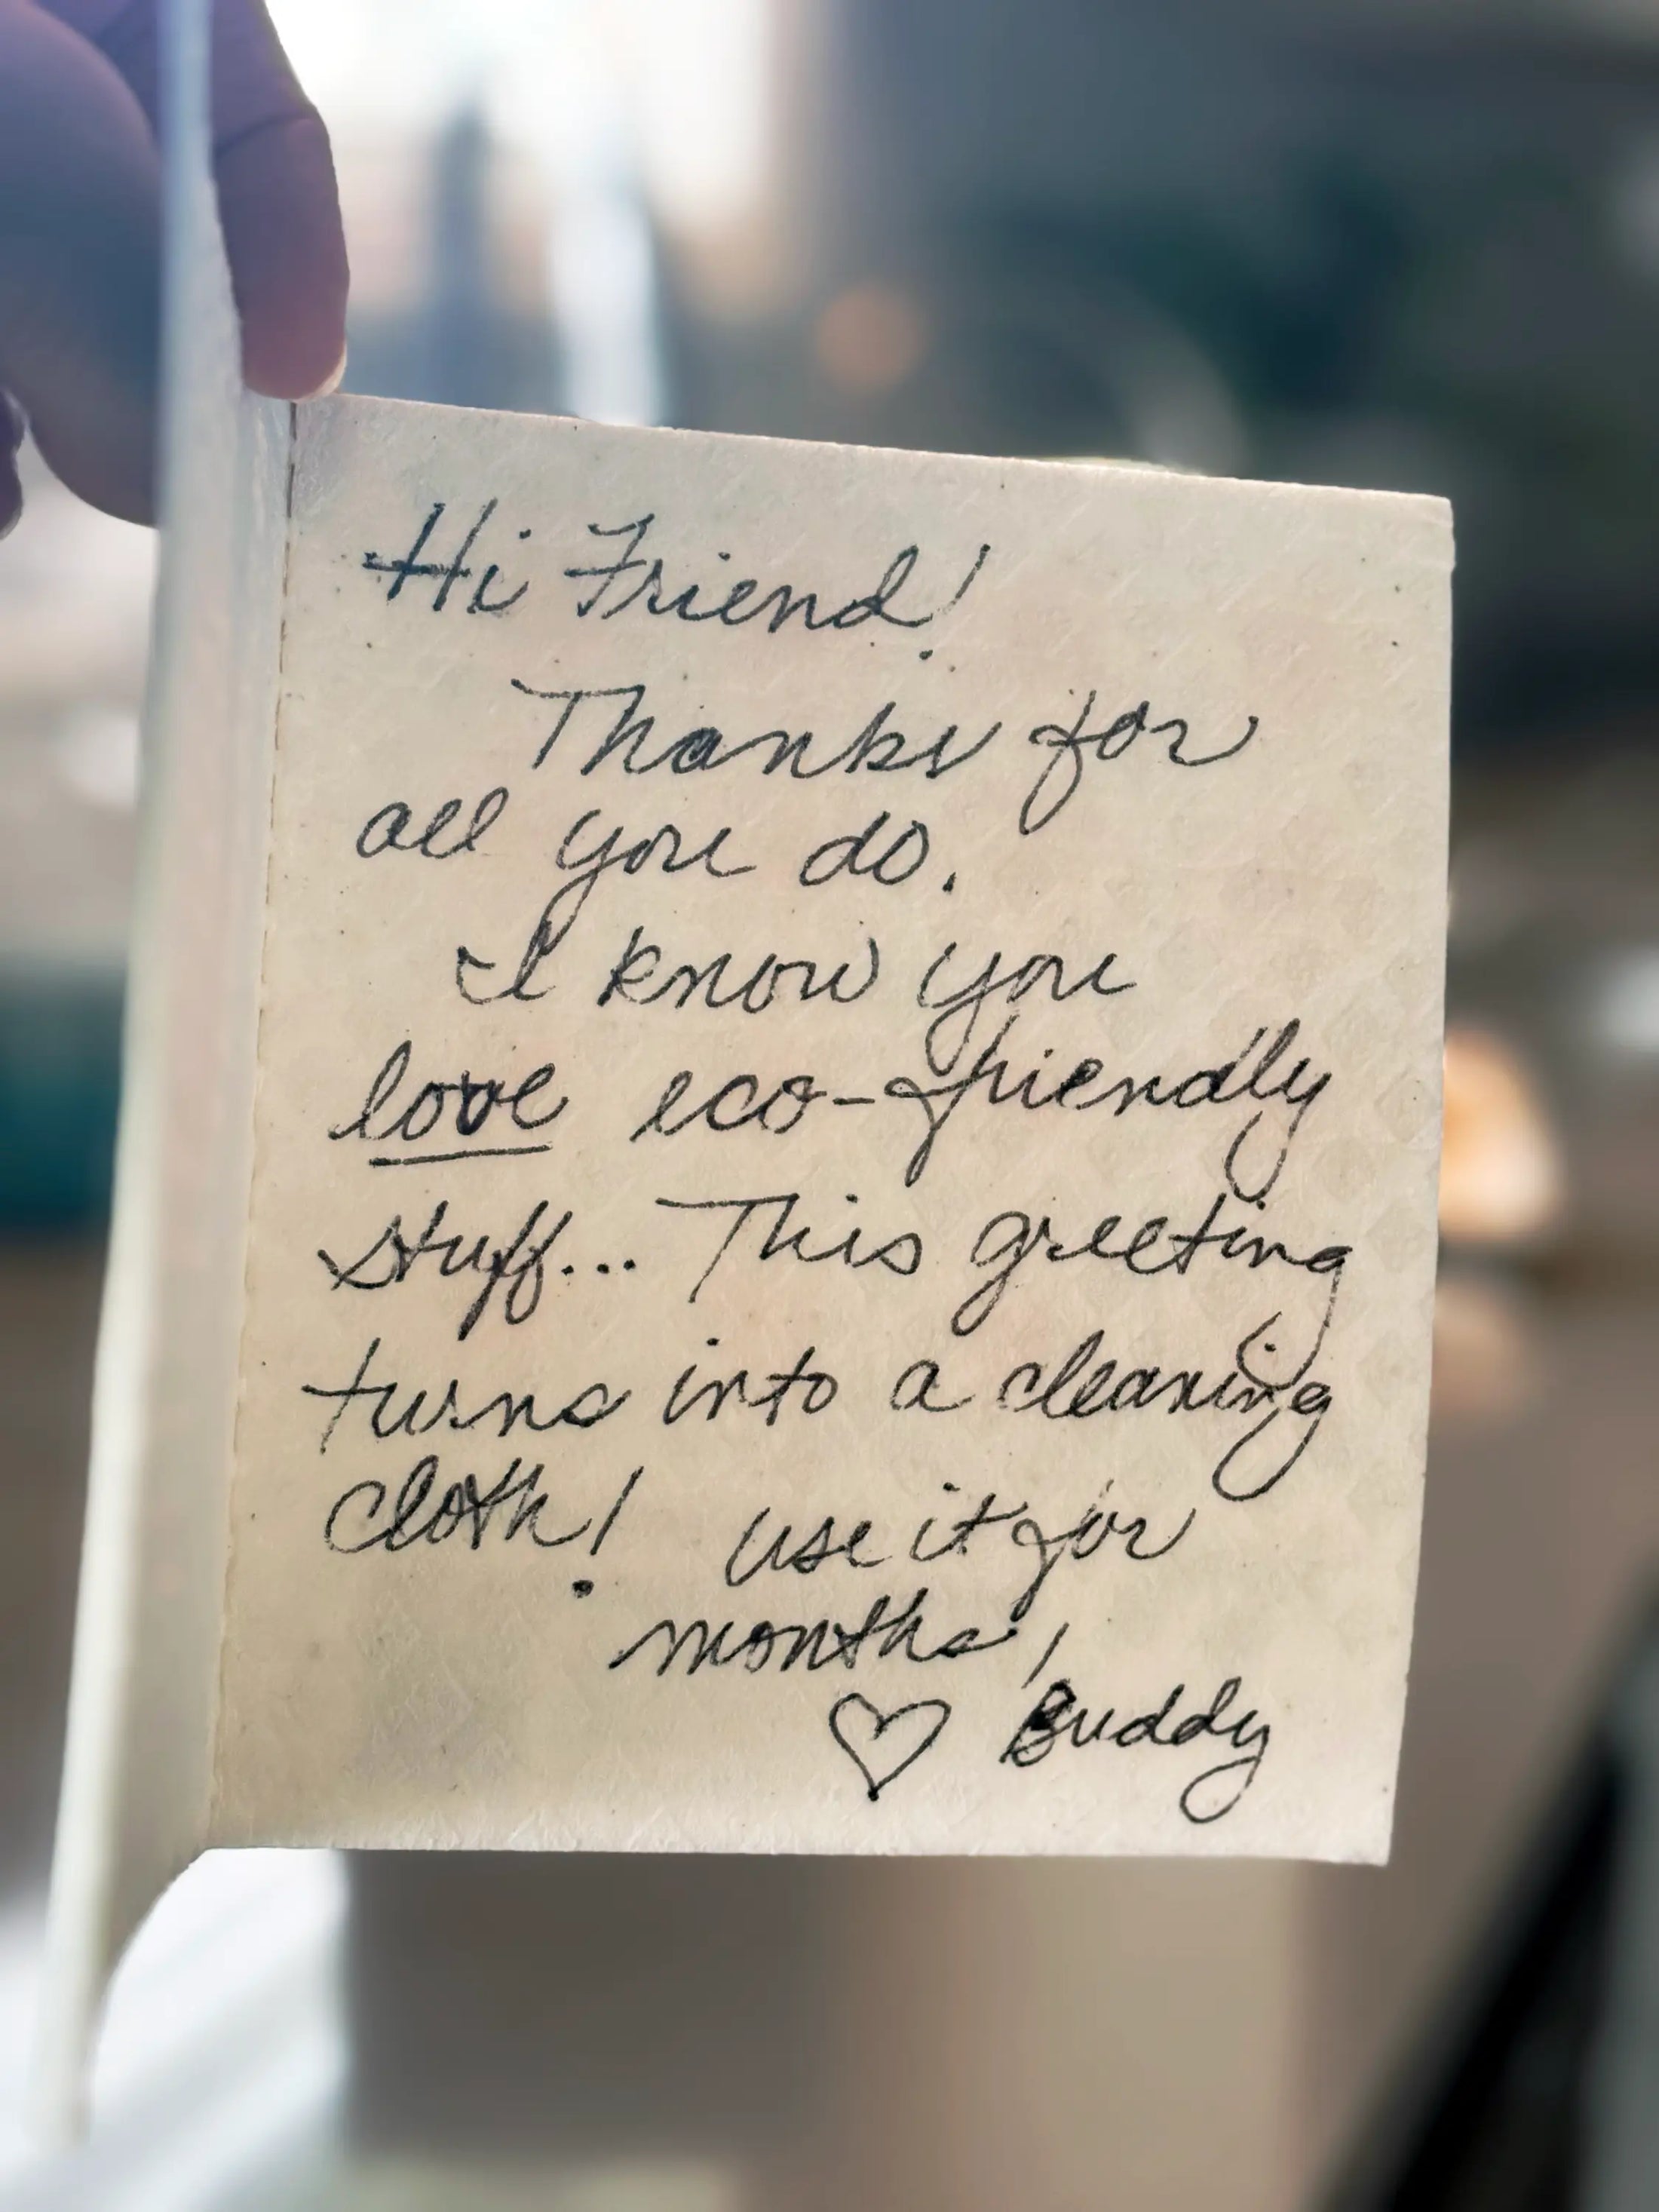 Hi Friend!
Thanks for
all you do.
I know you
love eco-friendly
stuff... This greeting
turns into a cleaning
cloth! use it for
months,
♡ Buddy